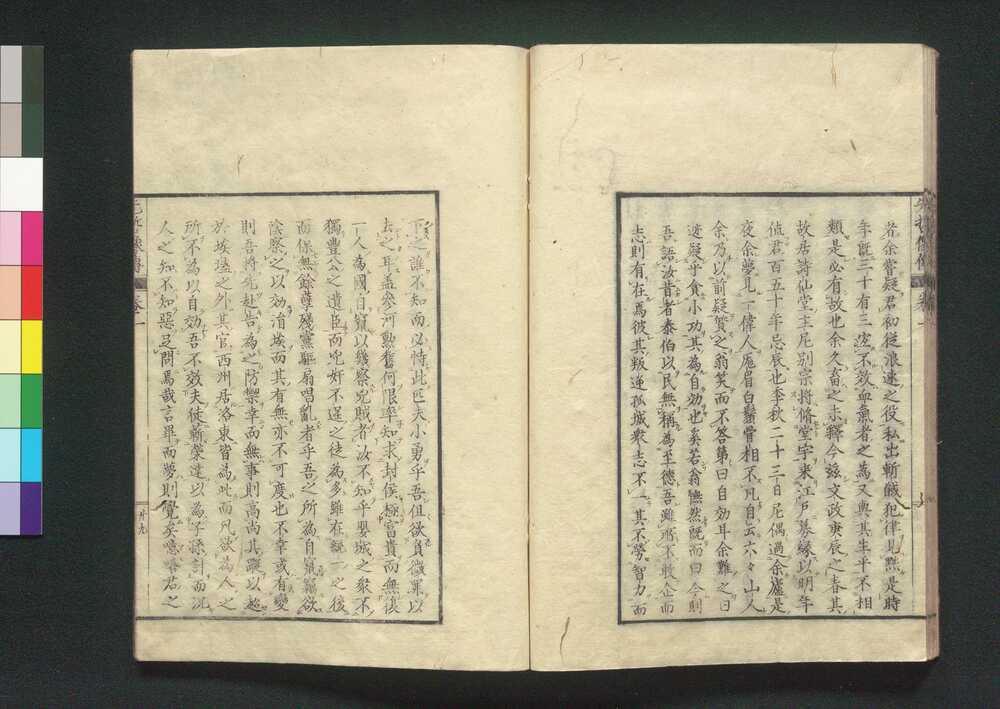 者余嘗疑君初從浪速之役私出斬馘犯律見黜是時
年既三十有三之不效血氣者之為又與其生平不相
類是必有故也余久畜之未釋今茲文政庚辰之春其
故居詩仙堂主尼別宗將脩堂宇來江戶募緣以明年
值君百五十年忌辰也季秋二十三日尼偶過余廬是
夜余夢見一偉人厖眉白鬚骨相不凡自云六々山人
余乃以前疑質之翁笑而不答第曰自効耳余難之曰
乎貪小功其為自効也矣若翁憮然既而曰今則
吾語汝昔者泰伯以民無稱為至德吾雖不敢企而
志則有在焉彼其叛逆孤城衆志不一其不勞智力而
下之誰不知而必恃此匹夫小勇乎吾但欲負微罪以
去之耳蓋參河勲舊何限率知求封侯極富貴而無復
一人為國自竄以幾察兇賊者汝不知乎嬰城之衆不
獨豊公之遺臣而兇奸不逞之徒為多雖在既一之後
而保無餘孽殘黨驅扇唱亂者乎吾之所為自竄竊欲
陰察之以効涓埃而其有無亦不可度也不幸或有變
則吾將先赴告為之防禦幸而無事則高尚其蹤以超
於埃𡏖之外其官西州居洛東皆為此而凡欲為人之
所不為以自効吾不效夫徒蘄榮達以為子孫計而況
人之知不知惡足問焉哉言畢而夢則覺矣噫嘻君之
先哲像傳 卷一 廿九